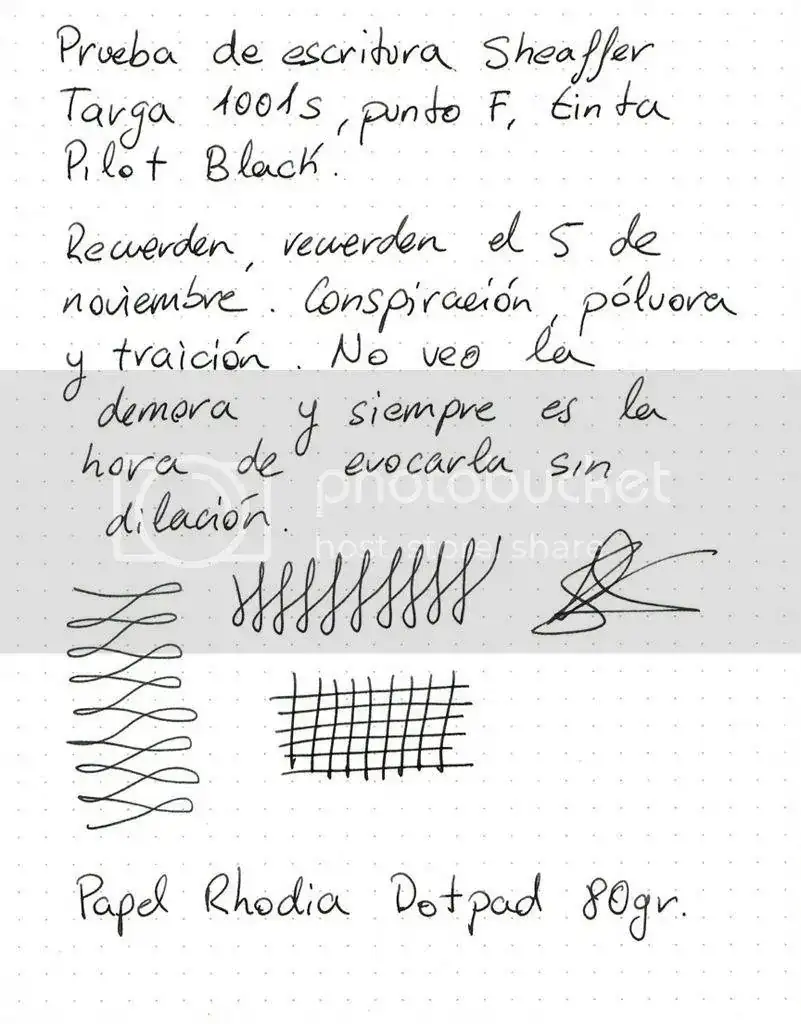 Prueba de escritura Sheaffer
Targa 1001s, punto F, tinta
Pilot Black.
Recuerden, recuerden el 5 de
noviembre. Conspiración, pólvora
y traición. No veo la
demora y siempre es la
hora de evocarla sin
dilación.
photobucket
host. store. share.
Papel Rhodia Dotpad 80gr.